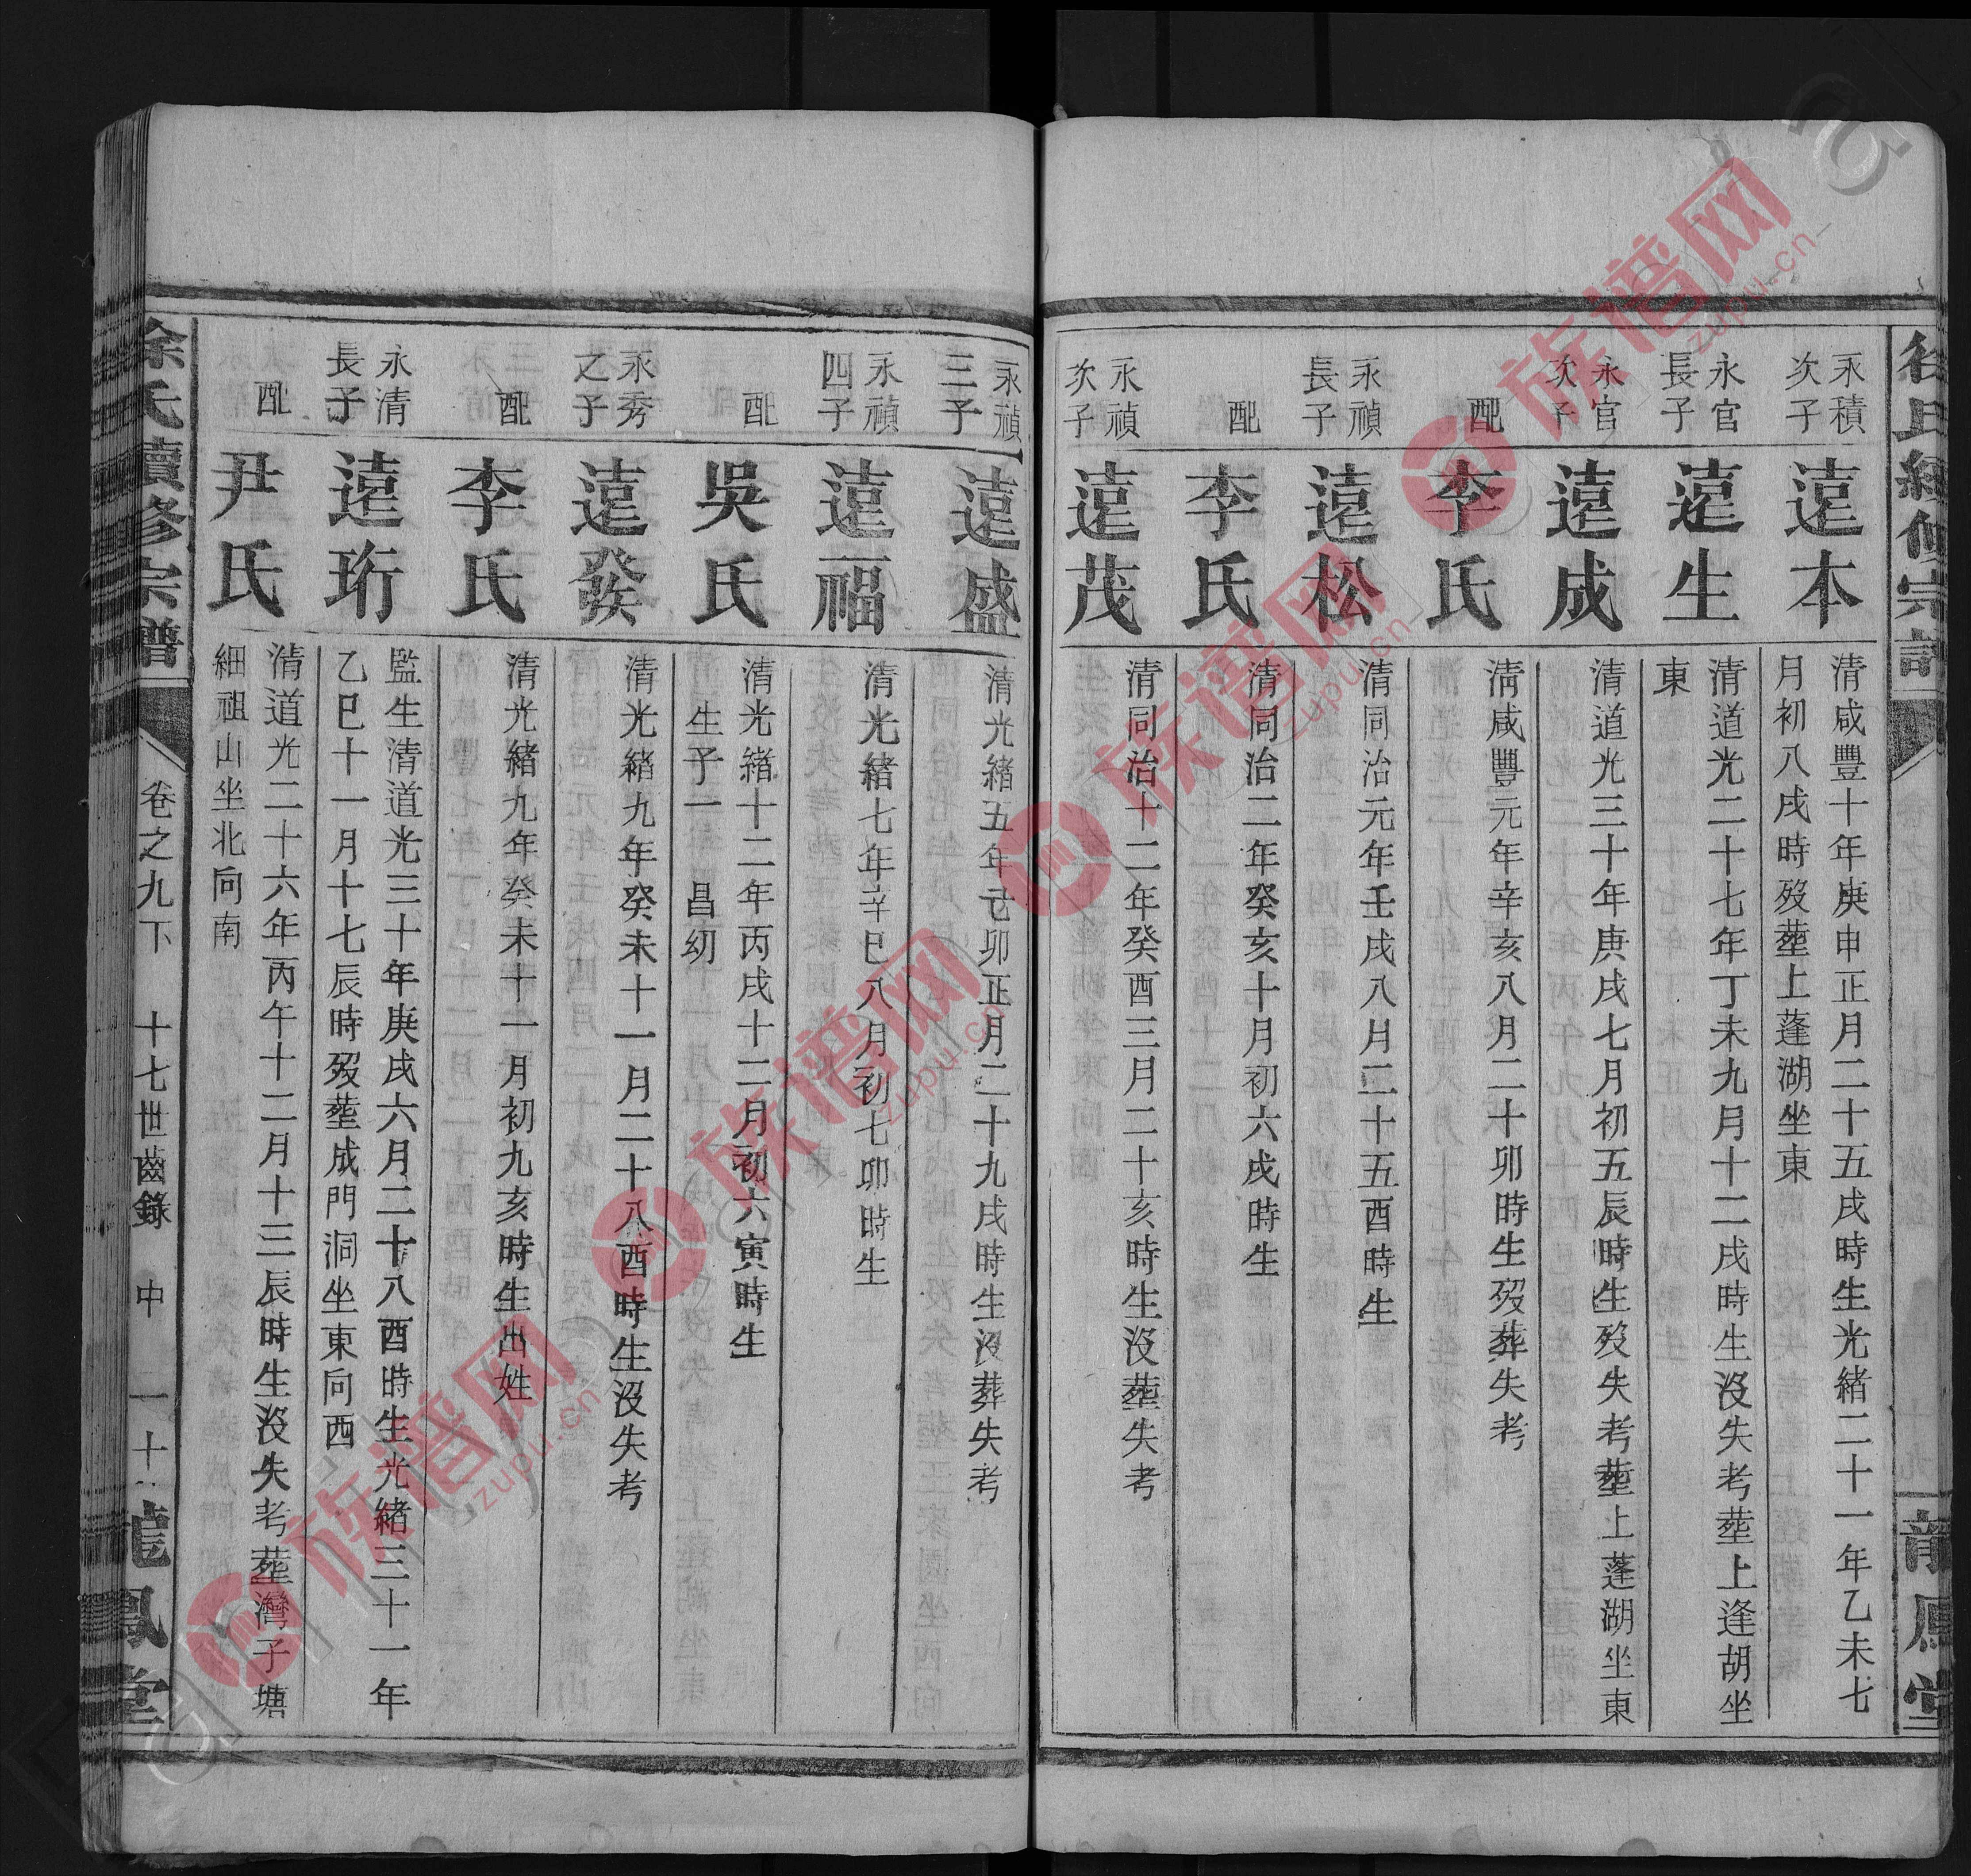 徐氏續修宗譜
龍鳳堂
永積
次子
遠本
清咸豐十年庚申正月二十五戌時生光緒二十一年乙未七
月初八戌時歿塟上蓬湖坐東
永官
長子
遠生
清道光二十七年丁未九月十二戌時生沒失考塟上逢胡坐
東
永官
次子
遠成
清道光三十年庚戌七月初五辰時生歿失考塟上蓬湖坐東
配
李氏
淸咸豐元年辛亥八月二十卯時生歿葬失考
永禎
長子
遠松
清同治元年壬戌八月二十五酉時生
配
李氏
清同治二年癸亥十月初六戌時生
永禎
次子
遠茂
清同治十二年癸酉三月二十亥時生沒塟失考
永禎
三子
遠盛
清光緒五年己卯正月二十九戌時生沒葬失考
永禎
四子
遠福
清光緒七年辛巳八月初七卯時生
配
吳氏
清光緒十二年丙戌十二月初六寅時生
生子一 昌紉
永秀
之子
遠發
清光緒九年癸未十一月二十八酉時生沒失考
配
李氏
清光緒九年癸未十一月初九亥時生出姓
永清
長子
遠珩
監生清道光三十年庚戌六月二十八酉時生光緒三十一年
乙巳十一月十七辰時歿塟成門洞坐東向西
配
尹氏
清道光二十六年丙午十二月十三辰時生沒失考塟灣子塘
細祖山坐北向南
徐氏續修宗譜
卷之九下
十七世齒錄
中
龍鳳堂
族谱网
zupu.cn
族谱网
zupu.cn
族谱网
zupu.cn